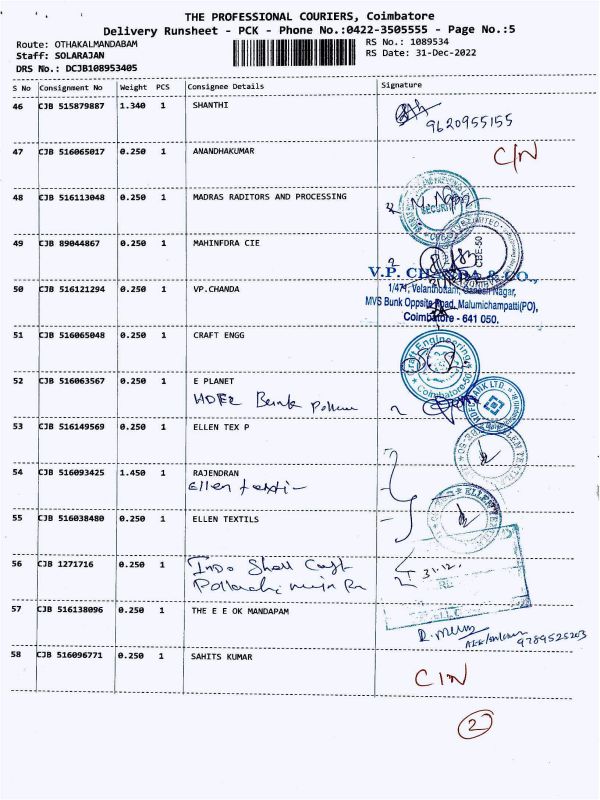 THE PROFESSIONAL COURIERS, Coimbatore
Delivery Runsheet - PCK - Phone No.:0422-3505555 - Page No.:5
Route: OTHAKALMANDABAM
RS No.: 1089534
Staff: SOLARAJAN
RS Date: 31-Dec-2022
DRS No.: DCJB108953405
S No Consignment No Weight PCS Consignee Details Signature
46 CJB 515879887 1.340 1 SHANTHI
9620955155
47 CJB 516065017 0.250 1 ANANDHAKUMAR C/N
48 CJB 516113048 0.250 1 MADRAS RADITORS AND PROCESSING
SECURITY
49 CJB 89044867 0.250 1 MAHINFDRA CIE
CBE-50
V.P. CHANDA & CO.,
50 CJB 516121294 0.250 1 VP.CHANDA
1/47, Velanthottam, Ganesh Nagar,
MVS Bunk Oppsite Road, Malumichampatti(PO),
Coimbatore - 641 050.
51 CJB 516065048 0.250 1 CRAFT ENGG
Craft Engineering
Coimbatore-50
52 CJB 516063567 0.250 1 E PLANET
HDFC Bank
HDFC BANK LTD.
53 CJB 516149569 0.250 1 ELLEN TEX P
ELLEN TEXTILE
54 CJB 516093425 1.450 1 RAJENDRAN
Ellen texti
55 CJB 516038480 0.250 1 ELLEN TEXTILS
ELLEN TEXTILE
56 CJB 1271716 0.250 1 Indo Shell Cast
Pollachi main Rd
31.12.
57 CJB 516138096 0.250 1 THE E E OK MANDAPAM
9789525203
58 CJB 516096771 0.250 1 SAHITS KUMAR
C/N
2